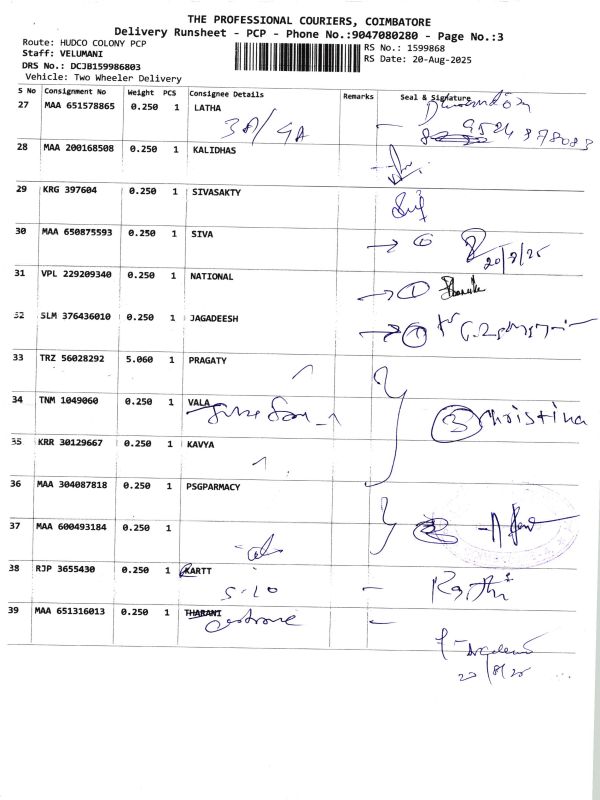 THE PROFESSIONAL COURIERS, COIMBATORE
Delivery Runsheet - PCP - Phone No.:9047080280 - Page No.:3
Route: HUDCO COLONY PCP
Staff: VELUMANI
DRS No.: DCJB159986803
Vehicle: Two Wheeler Delivery
RS No.: 1599868
RS Date: 20-Aug-2025
S No Consignment No Weight PCS Consignee Details Remarks Seal & Signature
27 MAA 651578865 0.250 1 LATHA
9524 878083
28 MAA 200168508 0.250 1 KALIDHAS
29 KRG 397604 0.250 1 SIVASAKTY
30 MAA 650875593 0.250 1 SIVA
1
20/8/25
31 VPL 229209340 0.250 1 NATIONAL
1
32 SLM 376436010 0.250 1 JAGADEESH
1
33 TRZ 56028292 5.060 1 PRAGATY
34 TNM 1049060 0.250 1 VALA
3 Christina
35 KRR 30129667 0.250 1 KAVYA
36 MAA 304087818 0.250 1 PSGPARMACY
37 MAA 600493184 0.250 1
38 RJP 3655430 0.250 1 KARTT
5-10
Karthi
39 MAA 651316013 0.250 1 THARANI
20/8/25